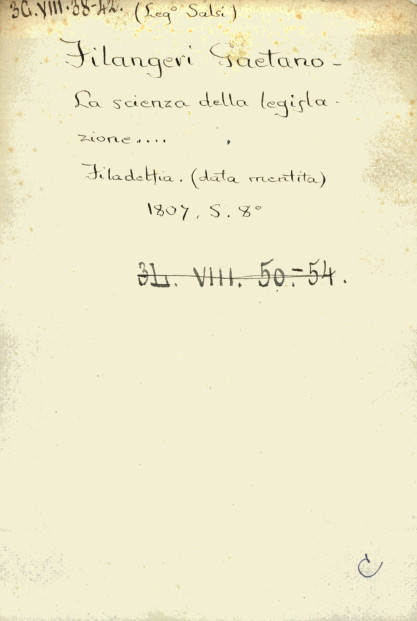 3G.VIII.38-42. (Leg° Salsi)
Filangeri Gaetano -
La scienza della legisla-
zione....
Filadelfia. (data mentita)
1807, S. 8°
3L. VIII. 50.-54.
C